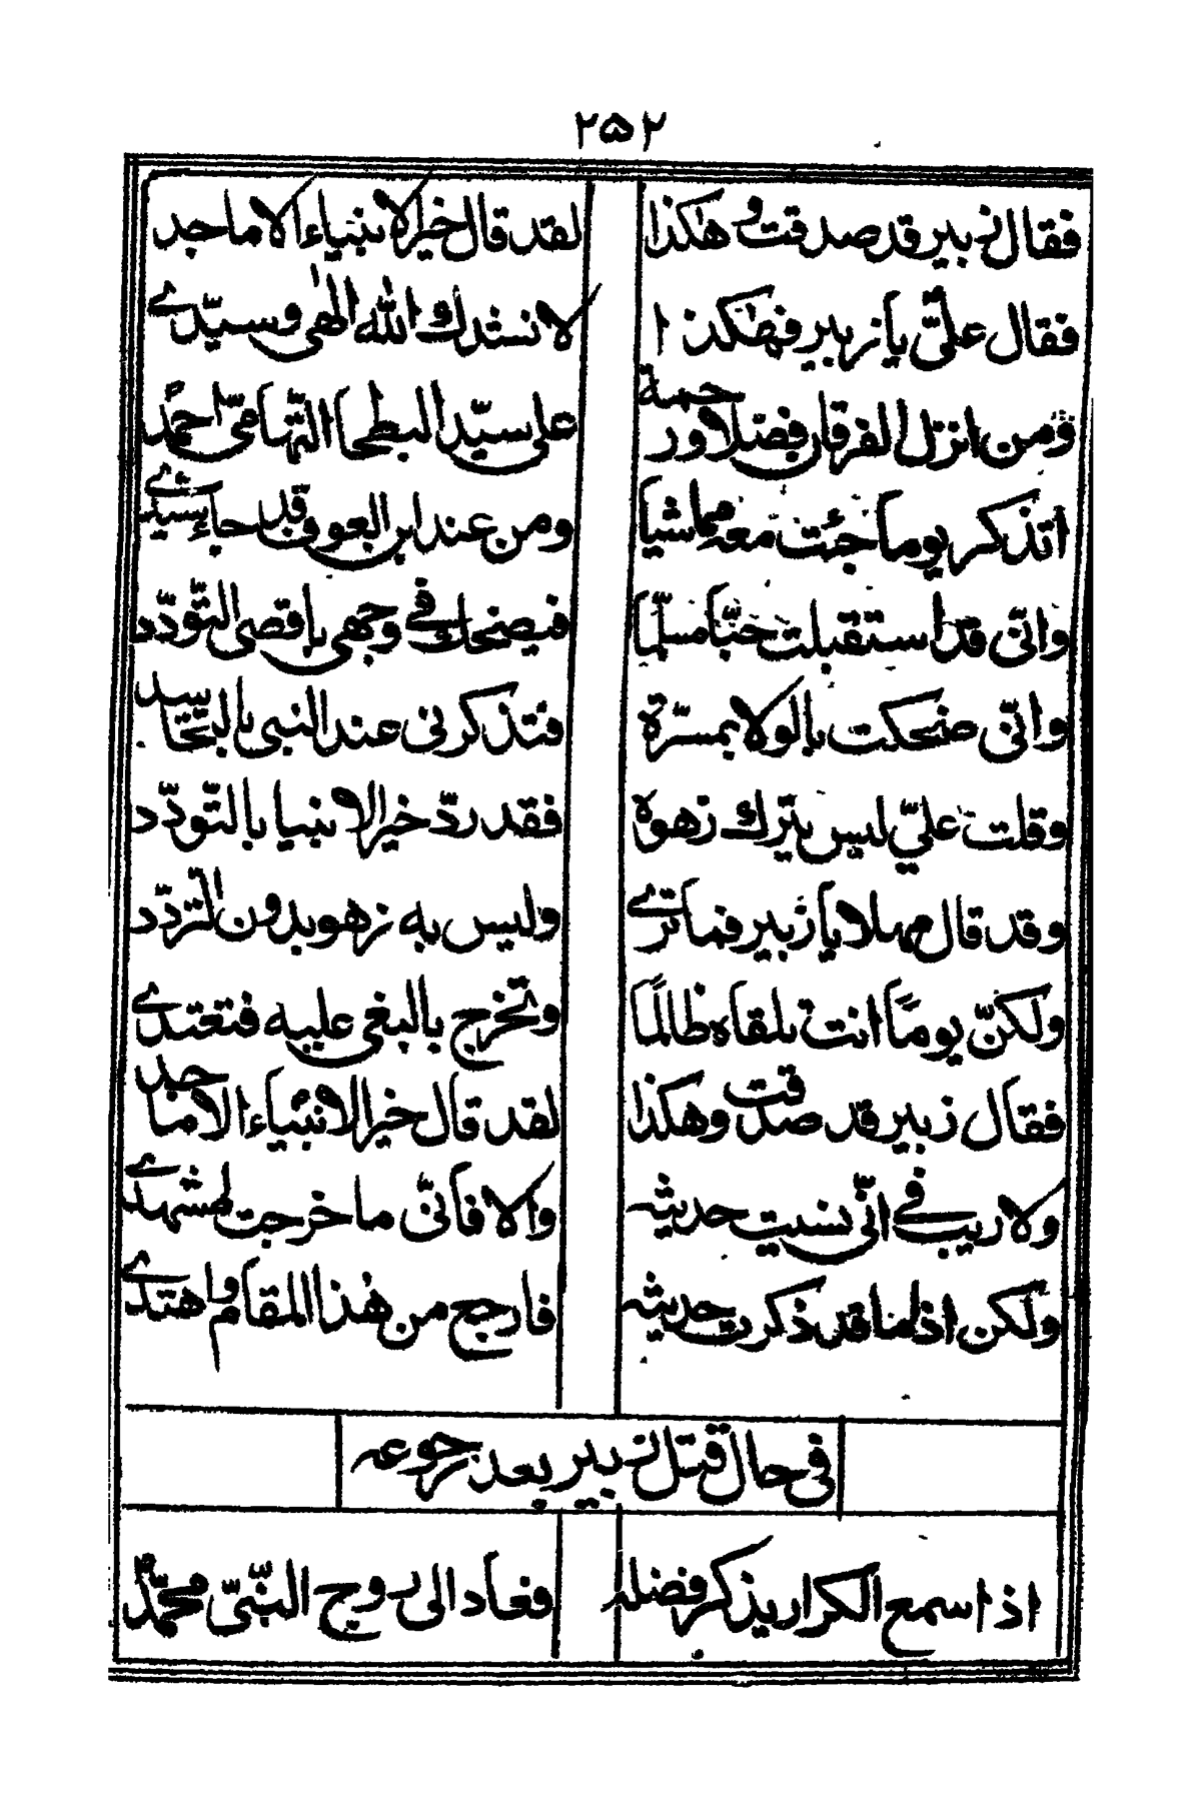 ۲۵۲
فقال زبير قد صدقت وهكذا لقد قال خير الانبياء الاماجد
فقال عليّ يا زبير فهكذا لانشدك الله الهى وسيّدى
ومن انزل الفرقان فضلا ورحمة على سيّد البطحا التّهامىّ احمد
اتذكر يوما جئت معه مماشيا ومن عند ابن العوف قد جاء سيّدى
وانّى قد استقبلت حبّا مسلّما فيضحك فى وجهى باقصى التّودّد
وانّى ضحكت بالولا بمسرّة فتذكرنى عند النبى بالتحاسد
وقلت علىّ ليس يترك زهوه فقد ردّ خير الانبيا بالتّودّد
وقد قال مهلا يا زبير فما ترى وليس به زهو بدون التّردّد
ولكنّ يومًا انت تلقاه ظالمًا وتخرج بالبغى عليه فتعتدى
فقال زبير قد صدقت وهكذا لقد قال خير الانبياء الاماجد
ولا ريب فى انّى نسيت حديثه والا فانّى ما خرجت لمشهدى
ولكن اذا ما قد ذكرت حديثه فارجع من هذا المقام واهتدى
فى حال قتل زبير بعد رجوعه
اذ اسمع الكرار يذكر فضله فعاد الى روح النّبىّ محمّد